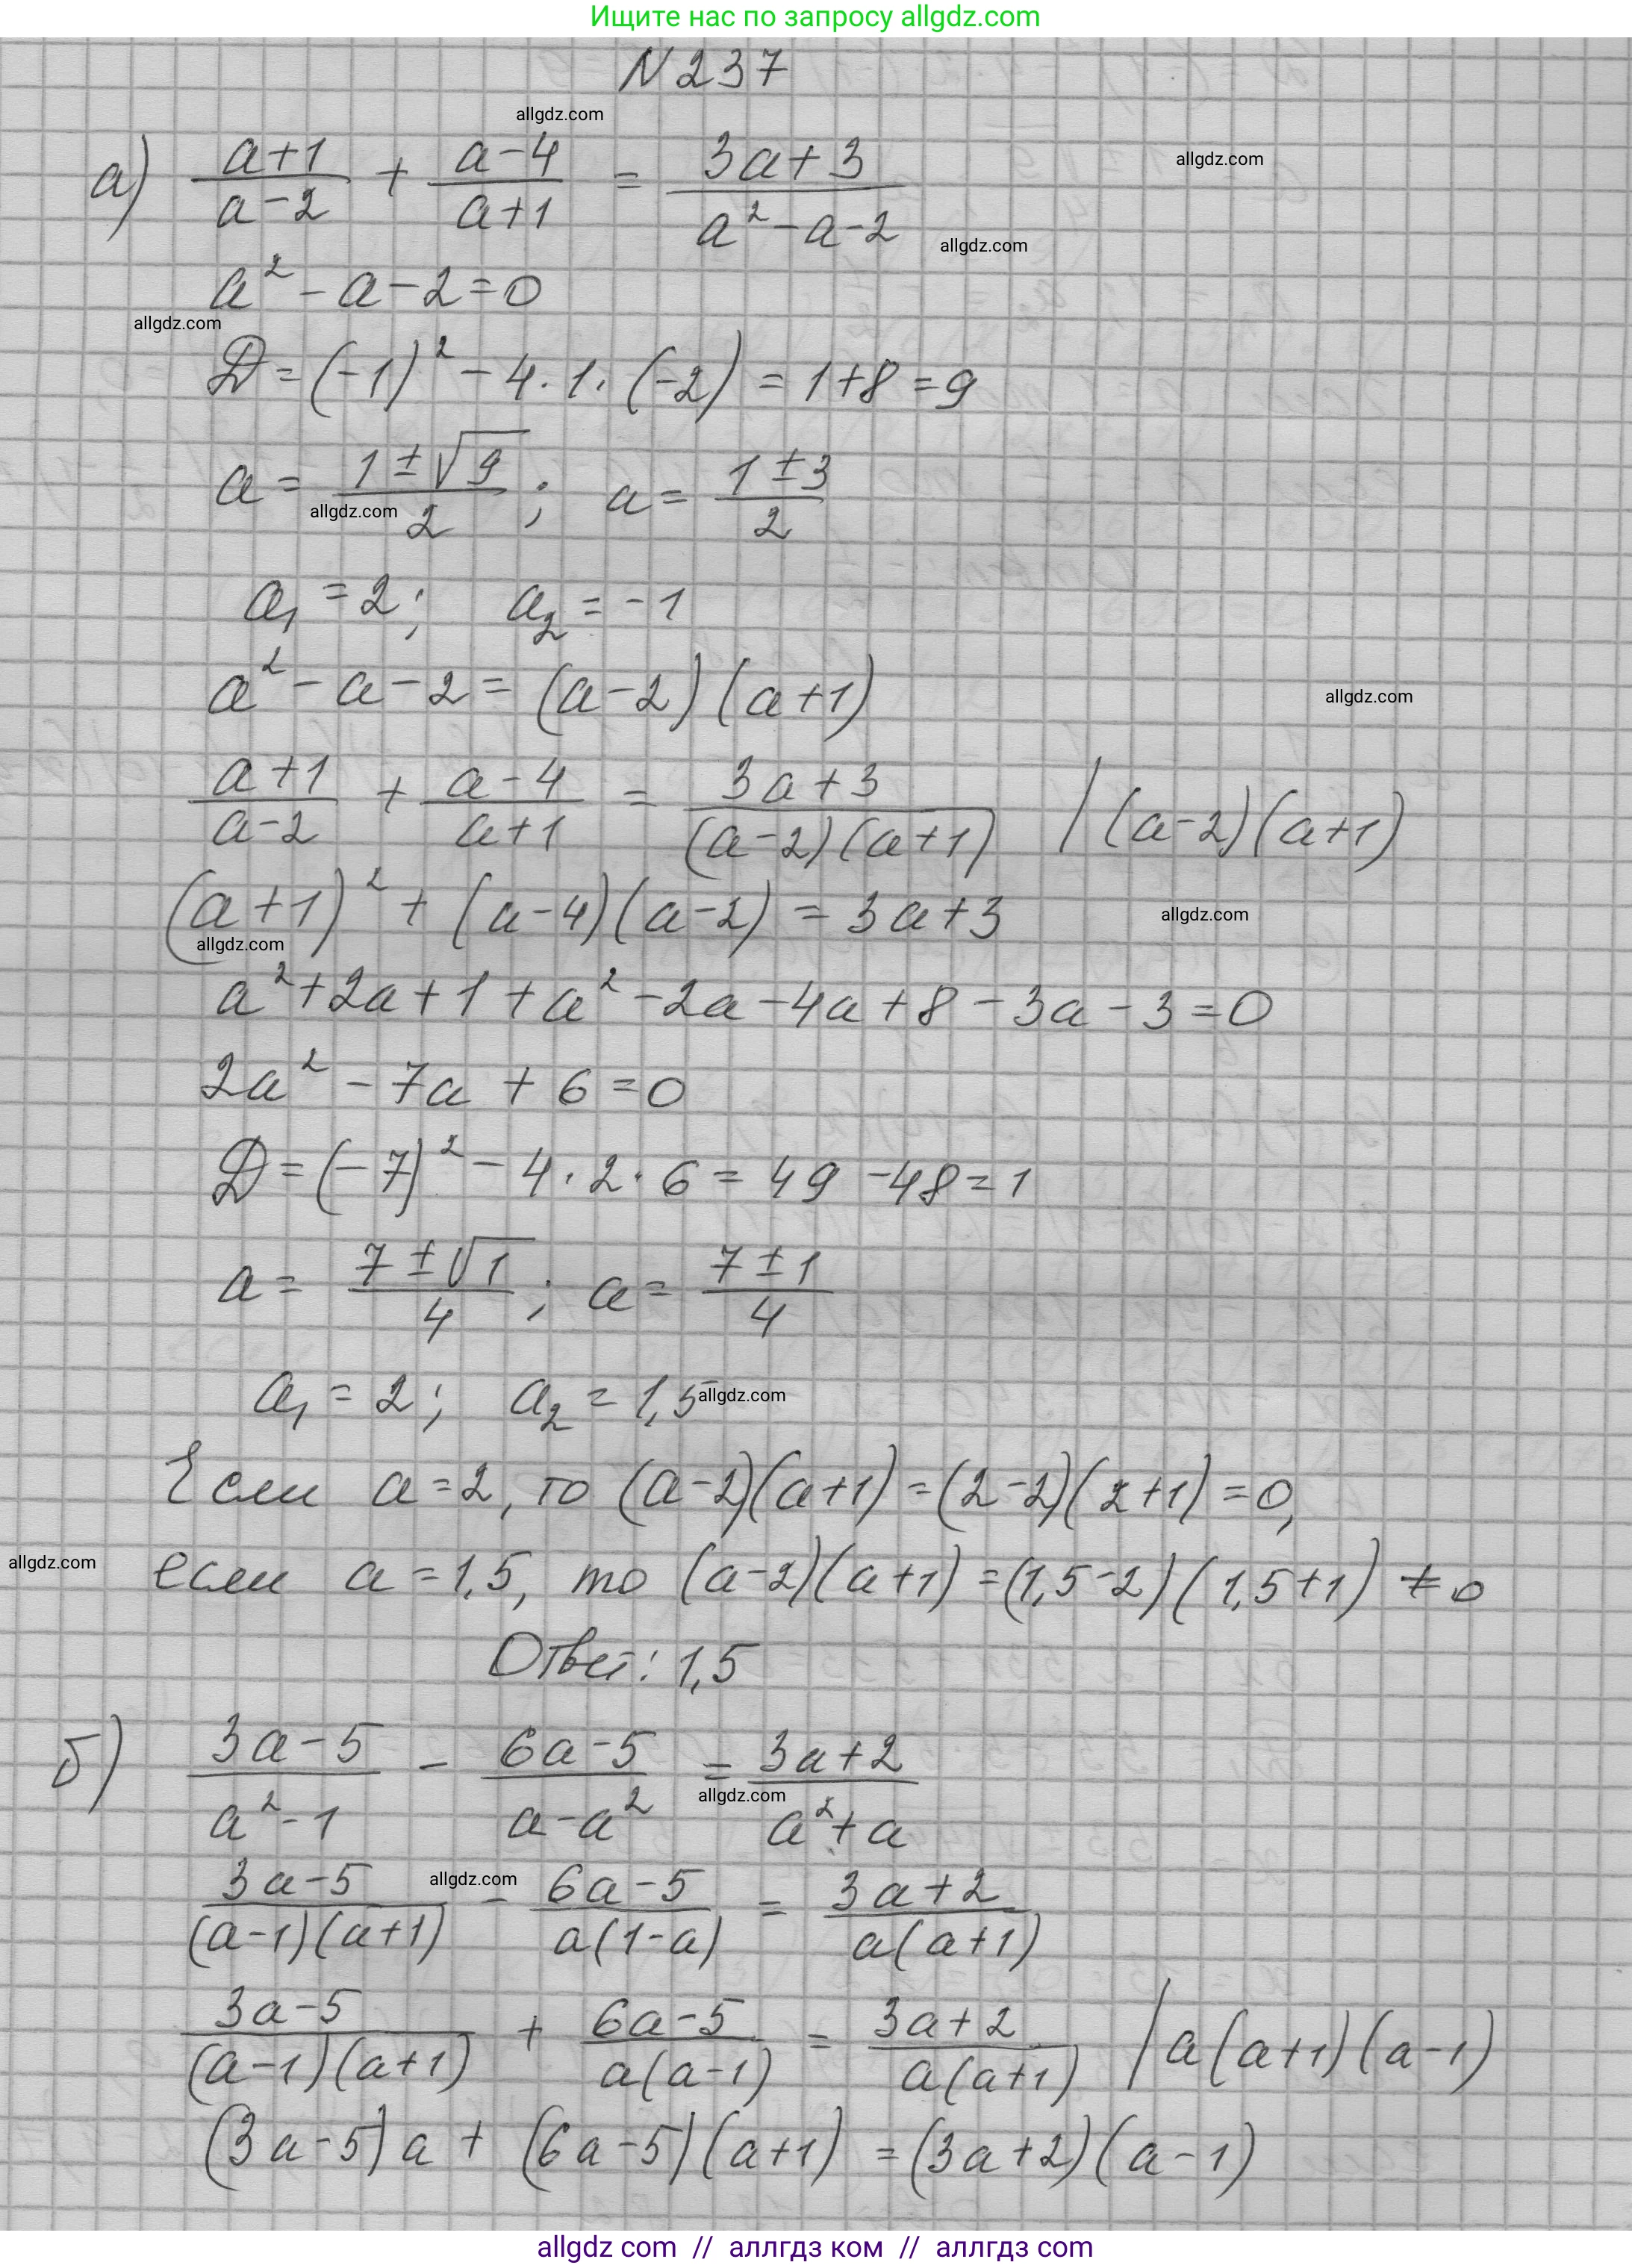 Ищите нас по запросу allgdz.com
N 237
allgdz.com
а) (a+1)/(a-2) + (a-4)/(a+1) = (3a+3)/(a²-a-2)
allgdz.com
allgdz.com
a²-a-2=0
allgdz.com
D=(-1)²-4·1·(-2)=1+8=9
a=(1±√9)/2; a=(1±3)/2
allgdz.com
a₁=2; a₂=-1
a²-a-2=(a-2)(a+1)
allgdz.com
(a+1)/(a-2) + (a-4)/(a+1) = (3a+3)/((a-2)(a+1)) | (a-2)(a+1)
(a+1)²+(a-4)(a-2)=3a+3
allgdz.com
allgdz.com
a²+2a+1+a²-2a-4a+8-3a-3=0
2a²-7a+6=0
D=(-7)²-4·2·6=49-48=1
a=(7±√1)/4; a=(7±1)/4
a₁=2; a₂=1,5
allgdz.com
Если a=2, то (a-2)(a+1)=(2-2)(2+1)=0,
allgdz.com
если a=1,5, то (a-2)(a+1)=(1,5-2)(1,5+1)≠0
Ответ: 1,5
б) (3a-5)/(a²-1) - (6a-5)/(a-a²) = (3a+2)/(a²+a)
allgdz.com
allgdz.com
(3a-5)/((a-1)(a+1)) - (6a-5)/(a(1-a)) = (3a+2)/(a(a+1))
(3a-5)/((a-1)(a+1)) + (6a-5)/(a(a-1)) = (3a+2)/(a(a+1)) | a(a+1)(a-1)
(3a-5)a+(6a-5)(a+1)=(3a+2)(a-1)
allgdz com // аллгдз ком // аллгдз com